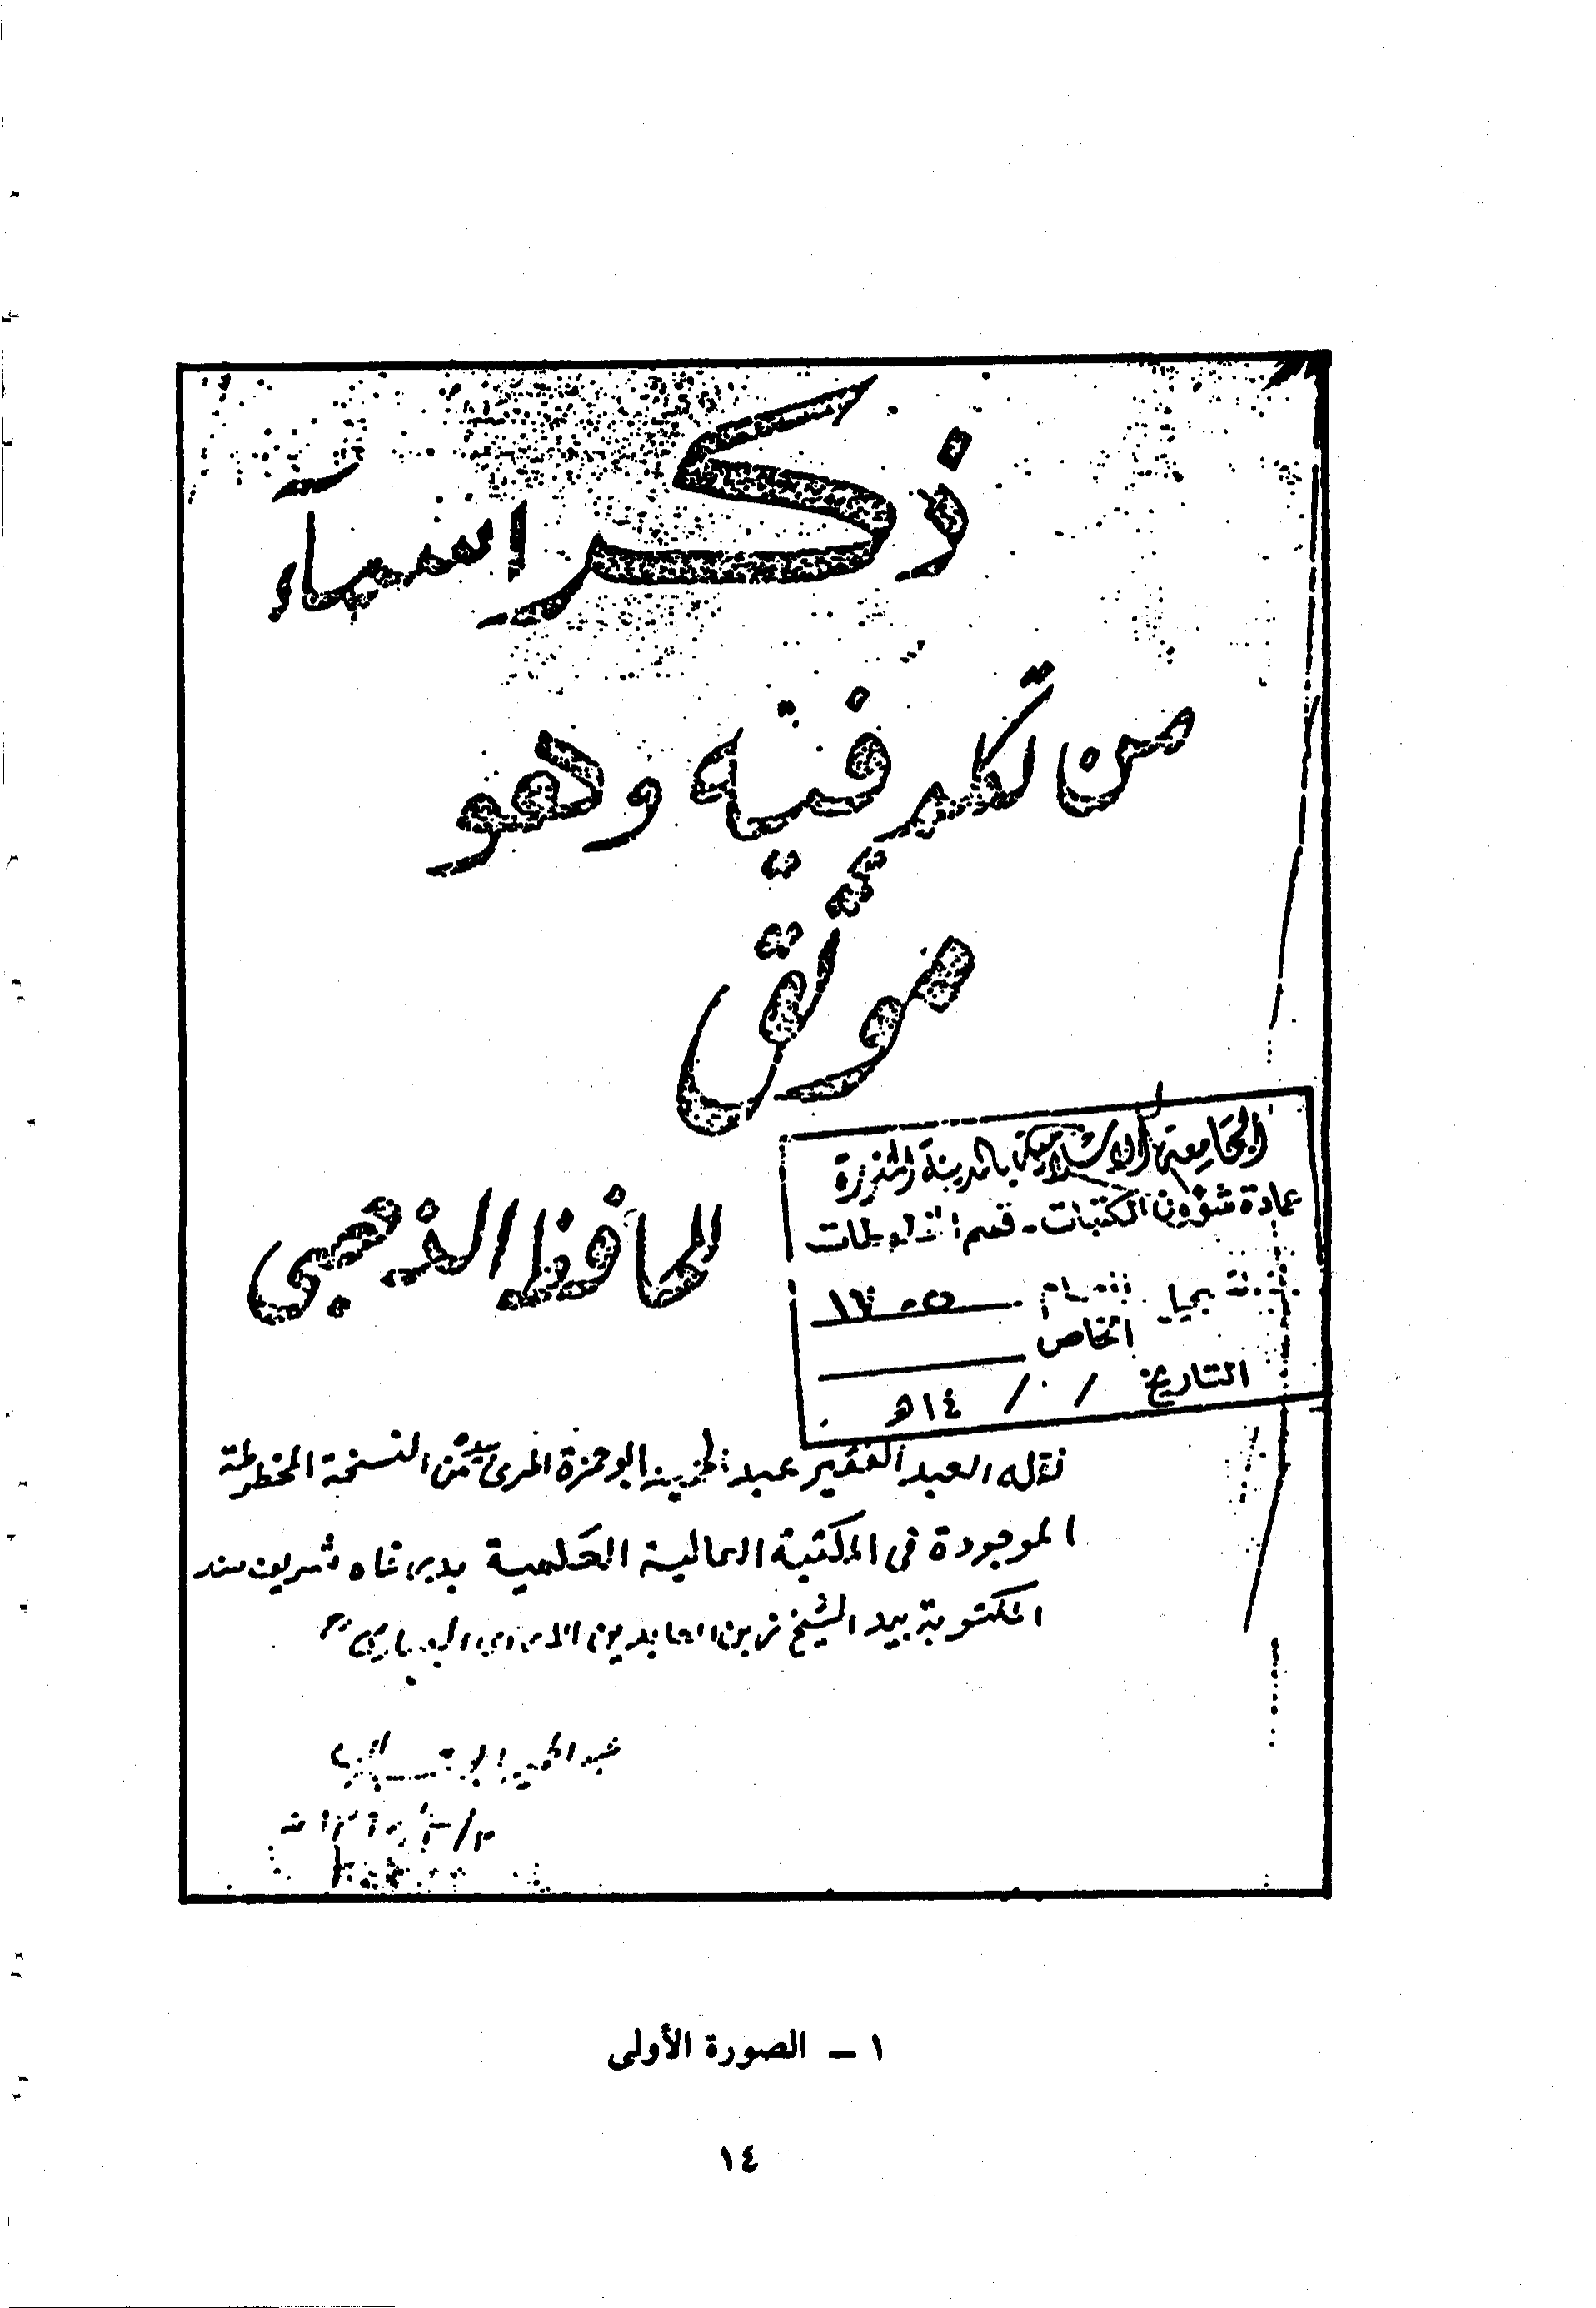 ذكر اسمآء
من تكلم فيه وهو
موثق
للحافظ الذهبي
الجامعة الاسلامية بالمدينة المنورة
عمادة شؤون المكتبات - قسم المخطوطات
الخاص
التاريخ / / ١٤هـ
نقله العبد الفقير ابو حمزة من النسخة المخطوطة
الموجودة فى المكتبة العالية العلمية بدرگاه شريف سند
المكتوبة بيد الشيخ زين العابدين
١ – الصورة الأولى
١٤